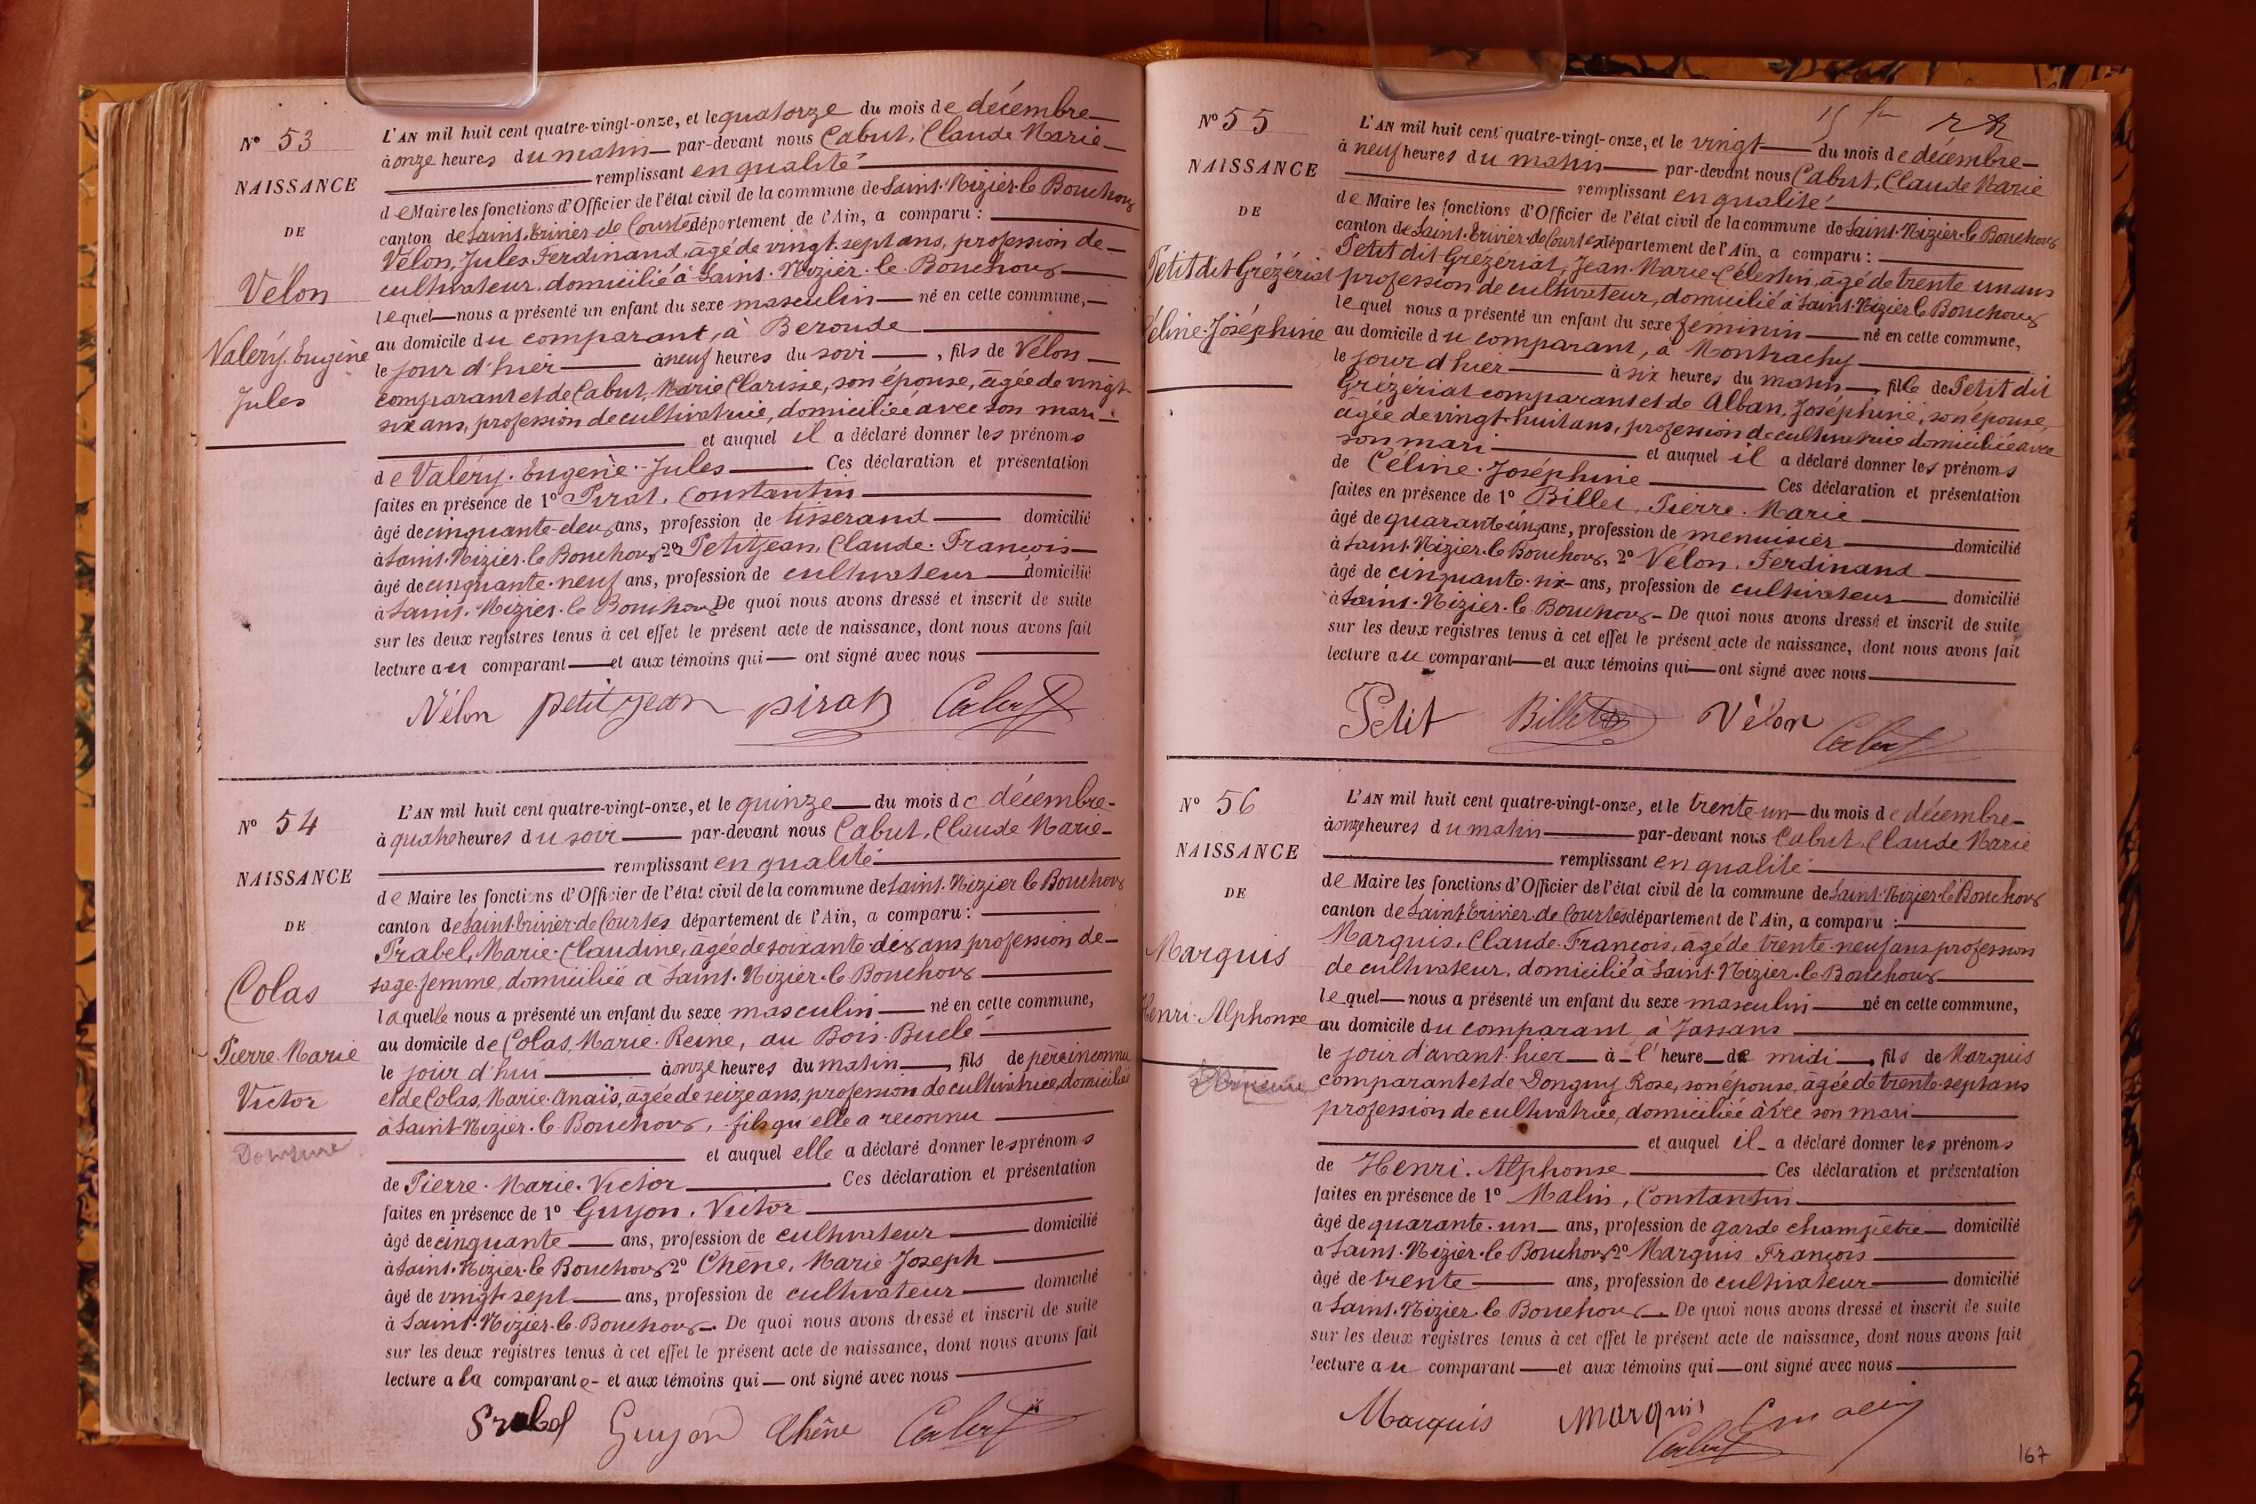 N° 53
NAISSANCE
DE
Vélon
Valéry. Eugène
Jules
L'AN mil huit cent quatre-vingt-onze, et le quatorze du mois de décembre
à onze heures du matin par-devant nous Cabut, Claude Marie
remplissant en qualité
de Maire les fonctions d'Officier de l'état civil de la commune de Saint-Nizier-le Bouchoux
canton de Saint-Trivier-de Courtes département de l'Ain, a comparu :
Vélon, Jules Ferdinand, âgé de vingt-sept ans, profession de
cultivateur, domicilié à Saint-Nizier-le-Bouchoux
lequel nous a présenté un enfant du sexe masculin né en cette commune,
au domicile du comparant, à Beroude
le jour d'hier à neuf heures du soir, fils de Vélon
comparant et de Cabut, Marie Clarisse, son épouse, âgée de vingt
six ans, profession de cultivatrice, domiciliée avec son mari
et auquel il a déclaré donner les prénoms
de Valéry. Eugène. Jules Ces déclaration et présentation
faites en présence de 1° Pirat, Constantin
âgé de cinquante-deux ans, profession de tisserand domicilié
à Saint-Nizier-le Bouchoux 2° Petitjean, Claude-François
âgé de cinquante-neuf ans, profession de cultivateur domicilié
à Saint-Nizier-le Bouchoux De quoi nous avons dressé et inscrit de suite
sur les deux registres tenus à cet effet le présent acte de naissance, dont nous avons fait
lecture au comparant et aux témoins qui ont signé avec nous
Vélon petitjean pirat Cabut
N° 54
NAISSANCE
DE
Colas
Pierre-Marie
Victor
L'AN mil huit cent quatre-vingt-onze, et le quinze du mois de décembre
à quatre heures du soir par-devant nous Cabut, Claude Marie
remplissant en qualité
de Maire les fonctions d'Officier de l'état civil de la commune de Saint-Nizier le Bouchoux
canton de Saint-Trivier-de Courtes département de l'Ain, a comparu :
Prabel, Marie-Claudine, âgée de soixante-dix ans profession de
sage-femme, domiciliée à Saint-Nizier-le Bouchoux
laquelle nous a présenté un enfant du sexe masculin né en cette commune,
au domicile de Colas, Marie-Reine, au Bois-Buclé
le jour d'hui à onze heures du matin, fils de père inconnu
et de Colas, Marie-Anaïs, âgée de seize ans, profession de cultivatrice, domiciliée
à Saint-Nizier-le Bouchoux, fils qu'elle a reconnu
et auquel elle a déclaré donner les prénoms
de Pierre. Marie. Victor Ces déclaration et présentation
faites en présence de 1° Guyon, Victor
âgé de cinquante ans, profession de cultivateur domicilié
à Saint-Nizier-le Bouchoux 2° Chêne, Marie Joseph
âgé de vingt-sept ans, profession de cultivateur domicilié
à Saint-Nizier-le-Bouchoux. De quoi nous avons dressé et inscrit de suite
sur les deux registres tenus à cet effet le présent acte de naissance, dont nous avons fait
lecture a la comparante et aux témoins qui ont signé avec nous
Guyon Chêne Cabut
N° 55
NAISSANCE
DE
Petit dit Grézériat
Céline-Joséphine
L'AN mil huit cent quatre-vingt-onze, et le vingt du mois de décembre
à neuf heures du matin par-devant nous Cabut, Claude Marie
remplissant en qualité
de Maire les fonctions d'Officier de l'état civil de la commune de Saint-Nizier-le Bouchoux
canton de Saint-Trivier-de Courtes département de l'Ain, a comparu :
Petit dit Grézériat, Jean-Marie-Célestin, âgé de trente un ans
profession de cultivateur, domicilié à Saint-Nizier le Bouchoux
lequel nous a présenté un enfant du sexe féminin né en cette commune,
au domicile du comparant, à Montrachy
le jour d'hier à six heures du matin, fille de Petit dit
Grézériat comparant et de Alban, Joséphine, son épouse,
âgée de vingt-huit ans, profession de cultivatrice domiciliée avec
son mari et auquel il a déclaré donner les prénoms
de Céline-Joséphine Ces déclaration et présentation
faites en présence de 1° Billet, Pierre-Marie
âgé de quarante cinq ans, profession de menuisier domicilié
à Saint-Nizier-le Bouchoux, 2° Vélon, Ferdinand
âgé de cinquante-six ans, profession de cultivateur domicilié
à Saint-Nizier-le Bouchoux De quoi nous avons dressé et inscrit de suite
sur les deux registres tenus à cet effet le présent acte de naissance, dont nous avons fait
lecture au comparant et aux témoins qui ont signé avec nous
Petit Billet Vélon Cabut
N° 56
NAISSANCE
DE
Marquis
Henri-Alphonse
L'AN mil huit cent quatre-vingt-onze, et le trente-un du mois de décembre
à onze heures du matin par-devant nous Cabut Claude Marie
remplissant en qualité
de Maire les fonctions d'Officier de l'état civil de la commune de Saint-Nizier-le Bouchoux
canton de Saint-Trivier-de Courtes département de l'Ain, a comparu :
Marquis, Claude-François, âgé de trente-neuf ans profession
de cultivateur, domicilié à Saint-Nizier-le-Bouchoux
lequel nous a présenté un enfant du sexe masculin né en cette commune,
au domicile du comparant à Jassans
le jour d'avant-hier à l'heure de midi, fils de Marquis
comparant et de Donguy Rose, son épouse, âgée de trente-sept ans
profession de cultivatrice, domiciliée avec son mari
et auquel il a déclaré donner les prénoms
de Henri. Alphonse Ces déclaration et présentation
faites en présence de 1° Malin, Constantin
âgé de quarante-un ans, profession de garde champêtre domicilié
a Saint-Nizier-le Bouchoux 2° Marquis François
âgé de trente ans, profession de cultivateur domicilié
a Saint-Nizier-le Bouchoux. De quoi nous avons dressé et inscrit de suite
sur les deux registres tenus à cet effet le présent acte de naissance, dont nous avons fait
lecture au comparant et aux témoins qui ont signé avec nous
Marquis Marquis
Cabut
167